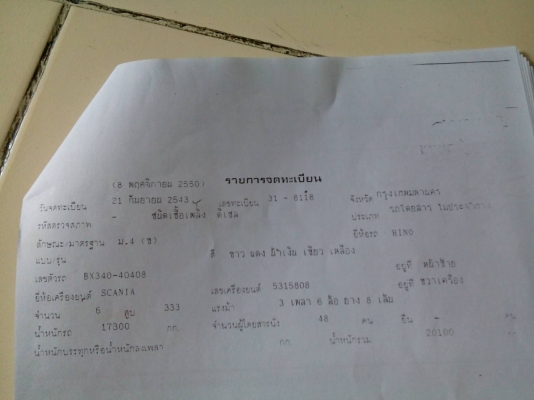 (8 พฤศจิกายน 2550) รายการจดทะเบียน
วันจดทะเบียน 21 กันยายน 2543 เลขทะเบียน 31 - 8118 จังหวัด กรุงเทพมหานคร
รหัสตรวจสภาพ - ชนิดเชื้อเพลิง ดีเซล ประเภท รถโดยสาร ไม่ประจำทาง
ลักษณะ/มาตรฐาน ม.4 (ข) ยี่ห้อรถ HINO
แบบ/รุ่น สี ขาว แดง น้ำเงิน เขียว เหลือง
เลขตัวรถ BX340-40408 อยู่ที่ หน้าซ้าย
ยี่ห้อเครื่องยนต์ SCANIA เลขเครื่องยนต์ 5315808 อยู่ที่ ขวาเครื่อง
จำนวน 6 สูบ 333 แรงม้า 3 เพลา 8 ล้อ ยาง 8 เส้น
น้ำหนักรถ 17300 กก. จำนวนผู้โดยสารนั่ง 48 คน ยืน - คน
น้ำหนักบรรทุกหรือน้ำหนักลงเพลา กก. น้ำหนักรวม 20180 กก.